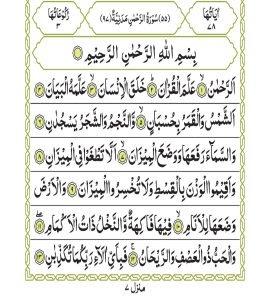 اٰیَاتُهَا ۷۸ (۵۵) سُوْرَةُ الرَّحْمٰنِ مَدَنِیَّةٌ (۹۷) رُكُوْعَاتُهَا ۳
بِسْمِ اللّٰهِ الرَّحْمٰنِ الرَّحِیْمِ
اَلرَّحْمٰنُ ۱ عَلَّمَ الْقُرْاٰنَ ۲ خَلَقَ الْاِنْسَانَ ۳ عَلَّمَهُ الْبَیَانَ ۴
اَلشَّمْسُ وَالْقَمَرُ بِحُسْبَانٍ ۵ وَّالنَّجْمُ وَالشَّجَرُ یَسْجُدٰنِ ۶
وَالسَّمَآءَ رَفَعَهَا وَوَضَعَ الْمِیْزَانَ ۷ اَلَّا تَطْغَوْا فِی الْمِیْزَانِ ۸
وَاَقِیْمُوا الْوَزْنَ بِالْقِسْطِ وَلَا تُخْسِرُوا الْمِیْزَانَ ۹ وَالْاَرْضَ
وَضَعَهَا لِلْاَنَامِ ۱۰ فِیْهَا فَاكِهَةٌ وَّالنَّخْلُ ذَاتُ الْاَكْمَامِ ۱۱
وَالْحَبُّ ذُو الْعَصْفِ وَالرَّیْحَانُ ۱۲ فَبِاَیِّ اٰلَآءِ رَبِّكُمَا تُكَذِّبٰنِ ۱۳
منزل ۷